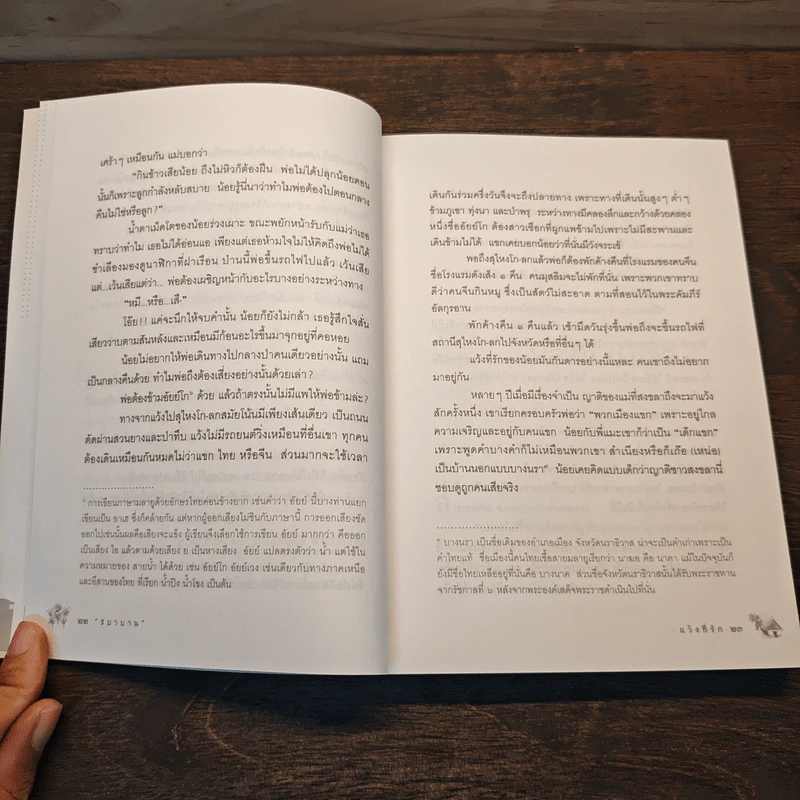 เศร้าๆ เหมือนกัน แม่บอกว่า
"กินข้าวเสียน้อย ถึงไม่หิวก็ต้องฝืน พ่อไม่ได้ปลุกน้อยตอน
นั้นก็เพราะลูกกำลังหลับสบาย น้อยรู้นี่นาว่าทำไมพ่อต้องไปตอนกลาง
คืนไม่ใช่หรือลูก?"
น้ำตาเม็ดโตของน้อยร่วงเผาะ ขณะพยักหน้ารับกับแม่ว่าเธอ
ทราบว่าทำไม เธอไม่ได้อ่อนแอ เพียงแต่เธอห้ามใจไม่ให้คิดถึงพ่อไม่ได้
ชำเลืองมองดูนาฬิกาที่ฝาเรือน ป่านนี้พ่อขึ้นรถไฟไปแล้ว เว้นเสีย
แต่...เว้นเสียแต่ว่า... พ่อต้องเผชิญหน้ากับอะไรบางอย่างระหว่างทาง
"หมี...หรือ...เสื-"
โอ๊ย!! แค่จะนึกให้จบคำนั้น น้อยก็ยังไม่กล้า เธอรู้สึกใจสั่น
เสียววาบตามสันหลังและเหมือนมีก้อนอะไรขึ้นมาจุกอยู่ที่คอหอย
น้อยไม่อยากให้พ่อเดินทางไปกลางป่าคนเดียวอย่างนั้น แถม
เป็นกลางคืนด้วย ทำไมพ่อถึงต้องเสี่ยงอย่างนั้นด้วยเล่า?
พ่อต้องข้ามอัยย์โก* ด้วย แล้วถ้าตรงนั้นไม่มีแพให้พ่อข้ามล่ะ?
ทางจากแว้งไปสุไหงโก-ลกสมัยโน้นมีเพียงเส้นเดียว เป็นถนน
ตัดผ่านสวนยางและป่าทึบ แว้งไม่มีรถยนต์วิ่งเหมือนที่อื่นเขา ทุกคน
ต้องเดินเหมือนกันหมดไม่ว่าแขก ไทย หรือจีน ส่วนมากจะใช้เวลา
* การเขียนภาษามลายูด้วยอักษรไทยค่อนข้างยาก เช่นคำว่า อัยย์ นี้บางท่านแยก
เขียนเป็น อาเฮ ซึ่งก็คล้ายกัน แต่หากผู้ออกเสียงไม่ชินกับภาษานี้ การออกเสียงชัด
ออกไปเช่นนั้นผลคือเสียงจะแข็ง ผู้เขียนจึงเลือกใช้การเขียน อัยย์ มากกว่า คือออก
เป็นเสียง ไอ แล้วตามด้วยเสียง ย เป็นหางเสียง อัยย์ แปลตรงตัวว่า น้ำ แต่ใช้ใน
ความหมายของ สายน้ำ ได้ด้วย เช่น อัยย์โก อัยย์เวง เช่นเดียวกับทางภาคเหนือ
และอีสานของไทย ที่เรียก น้ำปิง น้ำโขง เป็นต้น
๒๒ "ชบาบาน"
เดินกันร่วมครึ่งวันจึงจะถึงปลายทาง เพราะทางที่เดินนั้นสูงๆ ต่ำๆ
ข้ามภูเขา ทุ่งนา และป่าพรุ ระหว่างทางมีคลองลึกและกว้างด้วยคลอง
หนึ่งชื่ออัยย์โก ต้องสาวเชือกที่ผูกแพข้ามไปเพราะไม่มีสะพานและ
เดินข้ามไม่ได้ แขกเคยบอกน้อยว่าที่นั่นมีวังจระเข้
พอถึงสุไหงโก-ลกแล้วพ่อก็ต้องพักค้างคืนที่โรงแรมของคนจีน
ชื่อโรงแรมตังเส็ง ๑ คืน คนมุสลิมจะไม่พักที่นั่น เพราะพวกเขาทราบ
ดีว่าคนจีนกินหมู ซึ่งเป็นสัตว์ไม่สะอาด ตามที่สอนไว้ในพระคัมภีร์
อัลกุรอาน
พักค้างคืน ๑ คืนแล้ว เช้ามืดวันรุ่งขึ้นพ่อถึงจะขึ้นรถไฟที่
สถานีสุไหงโก-ลกไปจังหวัดหรือที่อื่นๆ ได้
แว้งที่รักของน้อยมันกันดารอย่างนี้แหละ คนเขาถึงไม่อยาก
มาอยู่กัน
หลายๆ ปีเมื่อมีเรื่องจำเป็น ญาติของแม่ที่สงขลาถึงจะมาแว้ง
สักครั้งหนึ่ง เขาเรียกครอบครัวพ่อว่า "พวกเมืองแขก" เพราะอยู่ไกล
ความเจริญและอยู่กับคนแขก น้อยกับพี่แมะเขาก็ว่าเป็น "เด็กแขก"
เพราะพูดคำบางคำก็ไม่เหมือนพวกเขา สำเนียงหรือก็เถื่อ (เหน่อ)
เป็นบ้านนอกแบบบางนรา* น้อยเคยคิดแบบเด็กว่าญาติชาวสงขลานี่
ชอบดูถูกคนเสียจริง
* บางนรา เป็นชื่อเดิมของอำเภอเมือง จังหวัดนราธิวาส น่าจะเป็นคำเก่าเพราะเป็น
คำไทยแท้ ชื่อเมืองนี้คนไทยเชื้อสายมลายูเรียกว่า นาฆอ คือ นาคา แม้ในปัจจุบันก็
ยังมีชื่อไทยเหลืออยู่ที่นั่นคือ บางนาค ส่วนชื่อจังหวัดนราธิวาสนั้นได้รับพระราชทาน
จากรัชกาลที่ ๖ หลังจากพระองค์เสด็จพระราชดำเนินไปที่นั่น
แว้งที่รัก ๒๓